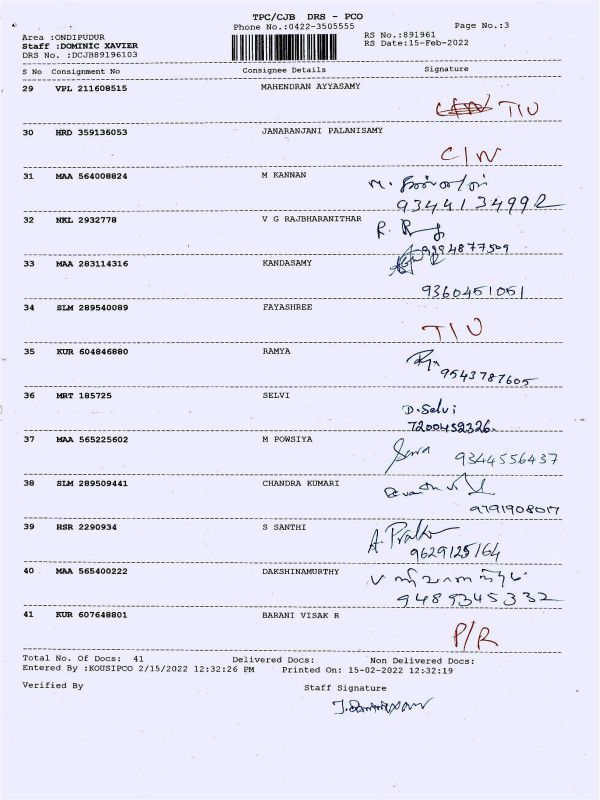 TPC/CJB DRS - PCO
Phone No.:0422-3505555 Page No.:3
Area :ONDIPUDUR RS No.:891961
Staff :DOMINIC XAVIER RS Date:15-Feb-2022
DRS No. :DCJB89196103
S No Consignment No Consignee Details Signature
29 VPL 211608515 MAHENDRAN AYYASAMY
TIU
30 HRD 359136053 JANARANJANI PALANISAMY
C/N
31 MAA 564008824 M KANNAN
9344134992
32 NKL 2932778 V G RAJBHARANITHAR
9994877509
33 MAA 283114316 KANDASAMY
9360451051
34 SLM 289540089 FAYASHREE
TIU
35 KUR 604846880 RAMYA
9543787605
36 MRT 185725 SELVI
D.Selvi
7200452326.
37 MAA 565225602 M POWSIYA
9344556437
38 SLM 289509441 CHANDRA KUMARI
9791908017
39 HSR 2290934 S SANTHI
9629125164
40 MAA 565400222 DAKSHINAMURTHY
9489345332
41 KUR 607648801 BARANI VISAK R
P/R
Total No. Of Docs: 41 Delivered Docs: Non Delivered Docs:
Entered By :KOUSIPCO 2/15/2022 12:32:26 PM Printed On: 15-02-2022 12:32:19
Verified By Staff Signature